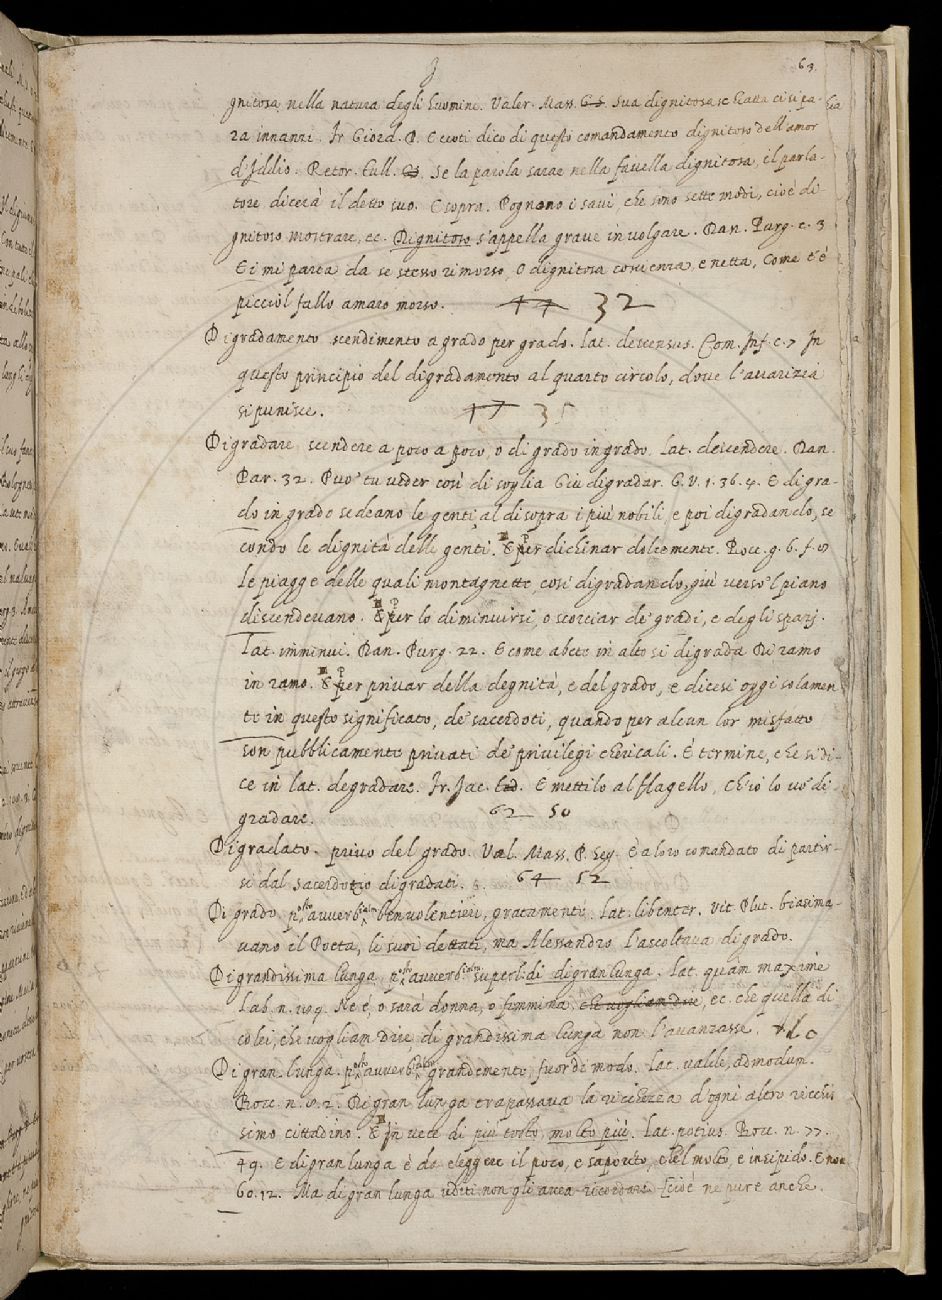 63
gnitosa nella natura degli huomini. Valer. Mass. G. S. Sua dignitosa schiatta ci si pa-
ra innanzi. Fr. Giord. P. Ecco ti dico di questo comandamento dignitoso dell'amor
d'Iddio. Retor. Tull. Se la parola sarae nella favella dignitosa, il parla-
tore dicerà il detto suo. E sopra. Pognono i savi, che sono sette modi, cioè di-
gnitoso mostrare, ec. Dignitoso s'appella grave in volgare. Dan. Purg. c. 3
Ei mi parea da se stesso rimorso, O dignitosa coscienza, e netta, Come t'è
picciol fallo amaro morso. 44 32
Digradamento scendimento a grado per grado. lat. descensus. Com. Inf. c. 7 In
questo principio del digradamento al quarto circolo, dove l'avarizia
si punisce. 17 35
Digradare scendere a poco a poco, o di grado in grado. lat. descendere. Dan.
Par. 32. Puo' tu veder così di soglia Giù digradar. G. V. 1. 36. 4. E di gra-
do in grado sedeano le genti, al di sopra i più nobili, e poi digradando, se
condo le dignità delle genti. ¶ E per dichinar dolcemente. Bocc. g. 6. f.
Le piagge delle quali montagnette, così digradando, giù verso 'l piano
discendevano. ¶ E per lo diminuirsi, o scorciar de' gradi, e degli spazj.
lat. imminui. Dan. Purg. 22. E come abete in alto si digrada Di ramo
in ramo. ¶ E per privar della degnità, e del grado, e dicesi oggi solamen
te in questo significato, de' sacerdoti, quando per alcun lor misfatto
son pubblicamente privati de' privilegi chericali. È termine, che si di-
ce in lat. degradare. Fr. Jac. Tod. E mettilo al flagello, ch'io lo vo' di-
gradare. 62 50
Digradato. privo del grado. Val. Mass. P. Sey. È a loro comandato di partir-
si dal sacerdozio digradati. 64 52
Di grado posto avverbialm. benvolentieri, gratamente. lat. libenter. Vit. Plut. biasima-
vano il Poeta, li suoi dettati, ma Alessandro l'ascoltava di grado.
Di grandissima lunga, posto avverbialm. superl. di di gran lunga. lat. quàm maximè
Lab. n. 119. Nè è, o sarà donna, o femmina, che vogliam dire, ec. che quella di
colei, che vogliam dire, di grandissima lunga non l'avanzasse.
Di gran lunga. posto avverbialm. grandemente, fuor di modo. lat. valde, admodum.
Bocc. n. 2. Di gran lunga trapassava la ricchezza d'ogni altro ricchis
simo cittadino. ¶ E In vece di più tosto, molto più. lat. potius. Bocc. n. 77.
49. E di gran lunga è da eleggere il poco, e saporito, che 'l molto, e insipido. E nov
60. 12. Ma di gran lunga uditi non gli avea ricordare [cioè ne pure anche.